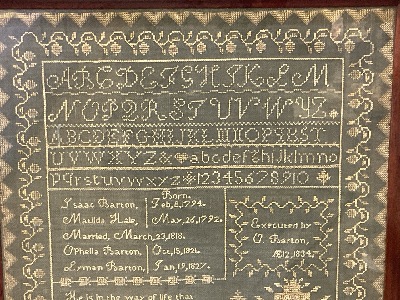 ABCDEFGHIJKLM
NOPQRSTUVWXYZ
ABCDEFGHIJKLMNOPQRST
UVWXYZ& abcdefghijklmno
pqrstuvwxyz 12345678910
Born.
Isaac Barton, Feb, 8, 1794.
Matilda Hale, May, 26, 1792.
Married, March, 23, 1818.
Ophelia Barton, Oct, 15, 1821.
Lyman Barton, Jan, 19, 1827.
Executed by
O. Barton,
Æ 12, 1834.
He is in the way of life that